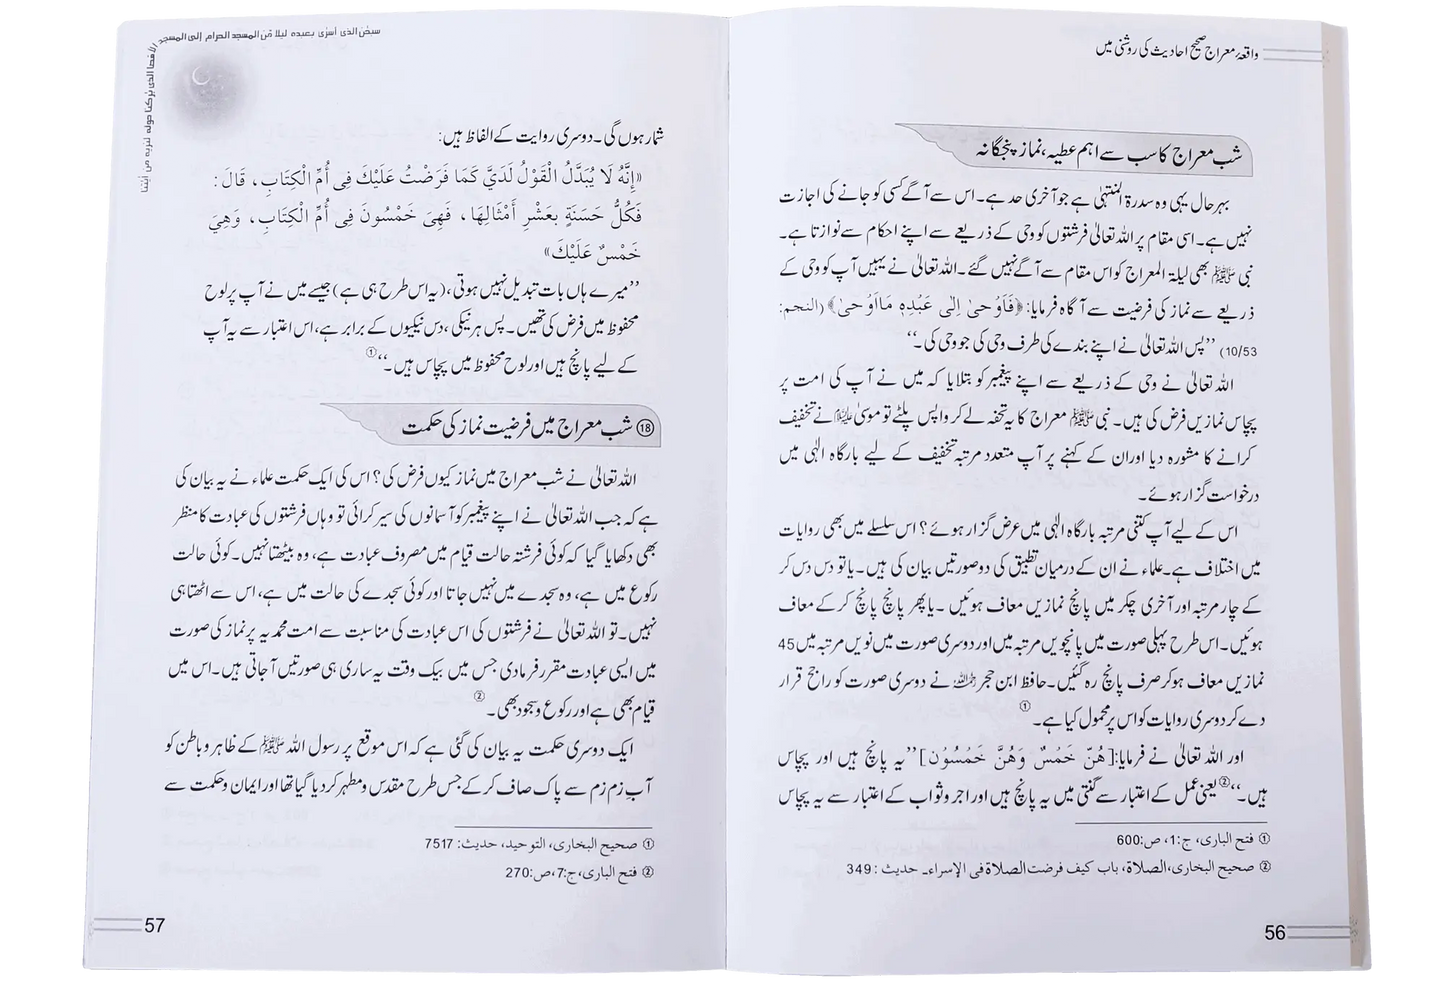 واقعۂ معراج صحیح احادیث کی روشنی میں
شب معراج کا سب سے اہم عطیہ، نماز پنجگانہ
بہرحال یہی وہ سدرۃ المنتہیٰ ہے جو آخری حد ہے۔ اس سے آگے کسی کو جانے کی اجازت
نہیں ہے۔ اسی مقام پر اللہ تعالیٰ فرشتوں کو وحی کے ذریعے سے اپنے احکام سے نوازتا ہے۔
نبی ﷺ بھی لیلۃ المعراج کو اس مقام سے آگے نہیں گئے۔ اللہ تعالیٰ نے یہیں آپ کو وحی کے
ذریعے سے نماز کی فرضیت سے آگاہ فرمایا: ﴿فَاَوْحیٰ اِلیٰ عَبْدِہٖ مَااَوْحیٰ﴾ (النجم:
10/53) ’’پس اللہ تعالیٰ نے اپنے بندے کی طرف وحی کی جو وحی کی۔‘‘
اللہ تعالیٰ نے وحی کے ذریعے سے اپنے پیغمبر کو بتلایا کہ میں نے آپ کی امت پر
پچاس نمازیں فرض کی ہیں۔ نبی ﷺ معراج کا یہ تحفہ لے کر واپس پلٹے تو موسیٰ علیہ السلام نے تخفیف
کرانے کا مشورہ دیا اور ان کے کہنے پر آپ متعدد مرتبہ تخفیف کے لیے بارگاہ الٰہی میں
درخواست گزار ہوئے۔
اس کے لیے آپ کتنی مرتبہ بارگاہ الٰہی میں عرض گزار ہوئے؟ اس سلسلے میں بھی روایات
میں اختلاف ہے۔ علماء نے ان کے درمیان تطبیق کی دو صورتیں بیان کی ہیں۔ یا تو دس دس کر
کے چار مرتبہ اور آخری چکر میں پانچ نمازیں معاف ہوئیں۔ یا پھر پانچ پانچ کر کے معاف
ہوئیں۔ اس طرح پہلی صورت میں پانچویں مرتبہ میں اور دوسری صورت میں نویں مرتبہ میں 45
نمازیں معاف ہو کر صرف پانچ رہ گئیں۔ حافظ ابن حجر رحمہ اللہ نے دوسری صورت کو راجح قرار
دے کر دوسری روایات کو اس پر محمول کیا ہے۔①
اور اللہ تعالیٰ نے فرمایا: [ھُنَّ خَمْسٌ وَھُنَّ خَمْسُوْن] ’’یہ پانچ ہیں اور پچاس
ہیں۔‘‘② یعنی عمل کے اعتبار سے گنتی میں یہ پانچ ہیں اور اجر و ثواب کے اعتبار سے یہ پچاس
① فتح الباری، ج:1، ص:600
② صحیح البخاری، الصلاۃ، باب کیف فرضت الصلاۃ فی الإسراء۔ حدیث : 349
56
سبحٰن الذی أسرٰی بعبده لیلا مّن المسجد الحرام إلی المسجد الأقصا الذی بٰرکنا حوله لنریه من اٰیٰتنا
شمار ہوں گی۔ دوسری روایت کے الفاظ ہیں:
«إِنَّهُ لَا يُبَدَّلُ الْقَوْلُ لَدَيَّ كَمَا فَرَضْتُ عَلَيْكَ فِي أُمِّ الْكِتَابِ ، قَالَ :
فَكُلُّ حَسَنَةٍ بِعَشْرِ أَمْثَالِهَا ، فَهِيَ خَمْسُونَ فِي أُمِّ الْكِتَابِ ، وَهِيَ
خَمْسٌ عَلَيْكَ»
’’میرے ہاں بات تبدیل نہیں ہوتی، (یہ اس طرح ہی ہے) جیسے میں نے آپ پر لوح
محفوظ میں فرض کی تھیں۔ پس ہر نیکی، دس نیکیوں کے برابر ہے، اس اعتبار سے یہ آپ
کے لیے پانچ ہیں اور لوح محفوظ میں پچاس ہیں۔‘‘①
⑱ شب معراج میں فرضیت نماز کی حکمت
اللہ تعالیٰ نے شب معراج میں نماز کیوں فرض کی؟ اس کی ایک حکمت علماء نے یہ بیان کی
ہے کہ جب اللہ تعالیٰ نے اپنے پیغمبر کو آسمانوں کی سیر کرائی تو وہاں فرشتوں کی عبادت کا منظر
بھی دکھایا گیا کہ کوئی فرشتہ حالت قیام میں مصروف عبادت ہے، وہ بیٹھتا نہیں۔ کوئی حالت
رکوع میں ہے، وہ سجدے میں نہیں جاتا اور کوئی سجدے کی حالت میں ہے، اس سے اٹھتا ہی
نہیں۔ تو اللہ تعالیٰ نے فرشتوں کی اس عبادت کی مناسبت سے امت محمدیہ پر نماز کی صورت
میں ایسی عبادت مقرر فرما دی جس میں بیک وقت یہ ساری ہی صورتیں آجاتی ہیں۔ اس میں
قیام بھی ہے اور رکوع و سجود بھی۔②
ایک دوسری حکمت یہ بیان کی گئی ہے کہ اس موقع پر رسول اللہ ﷺ کے ظاہر و باطن کو
آب زم زم سے پاک صاف کر کے جس طرح مقدس و مطہر کر دیا گیا تھا اور ایمان و حکمت سے
① صحیح البخاری، التوحید، حدیث: 7517
② فتح الباری، ج:7، ص:270
57